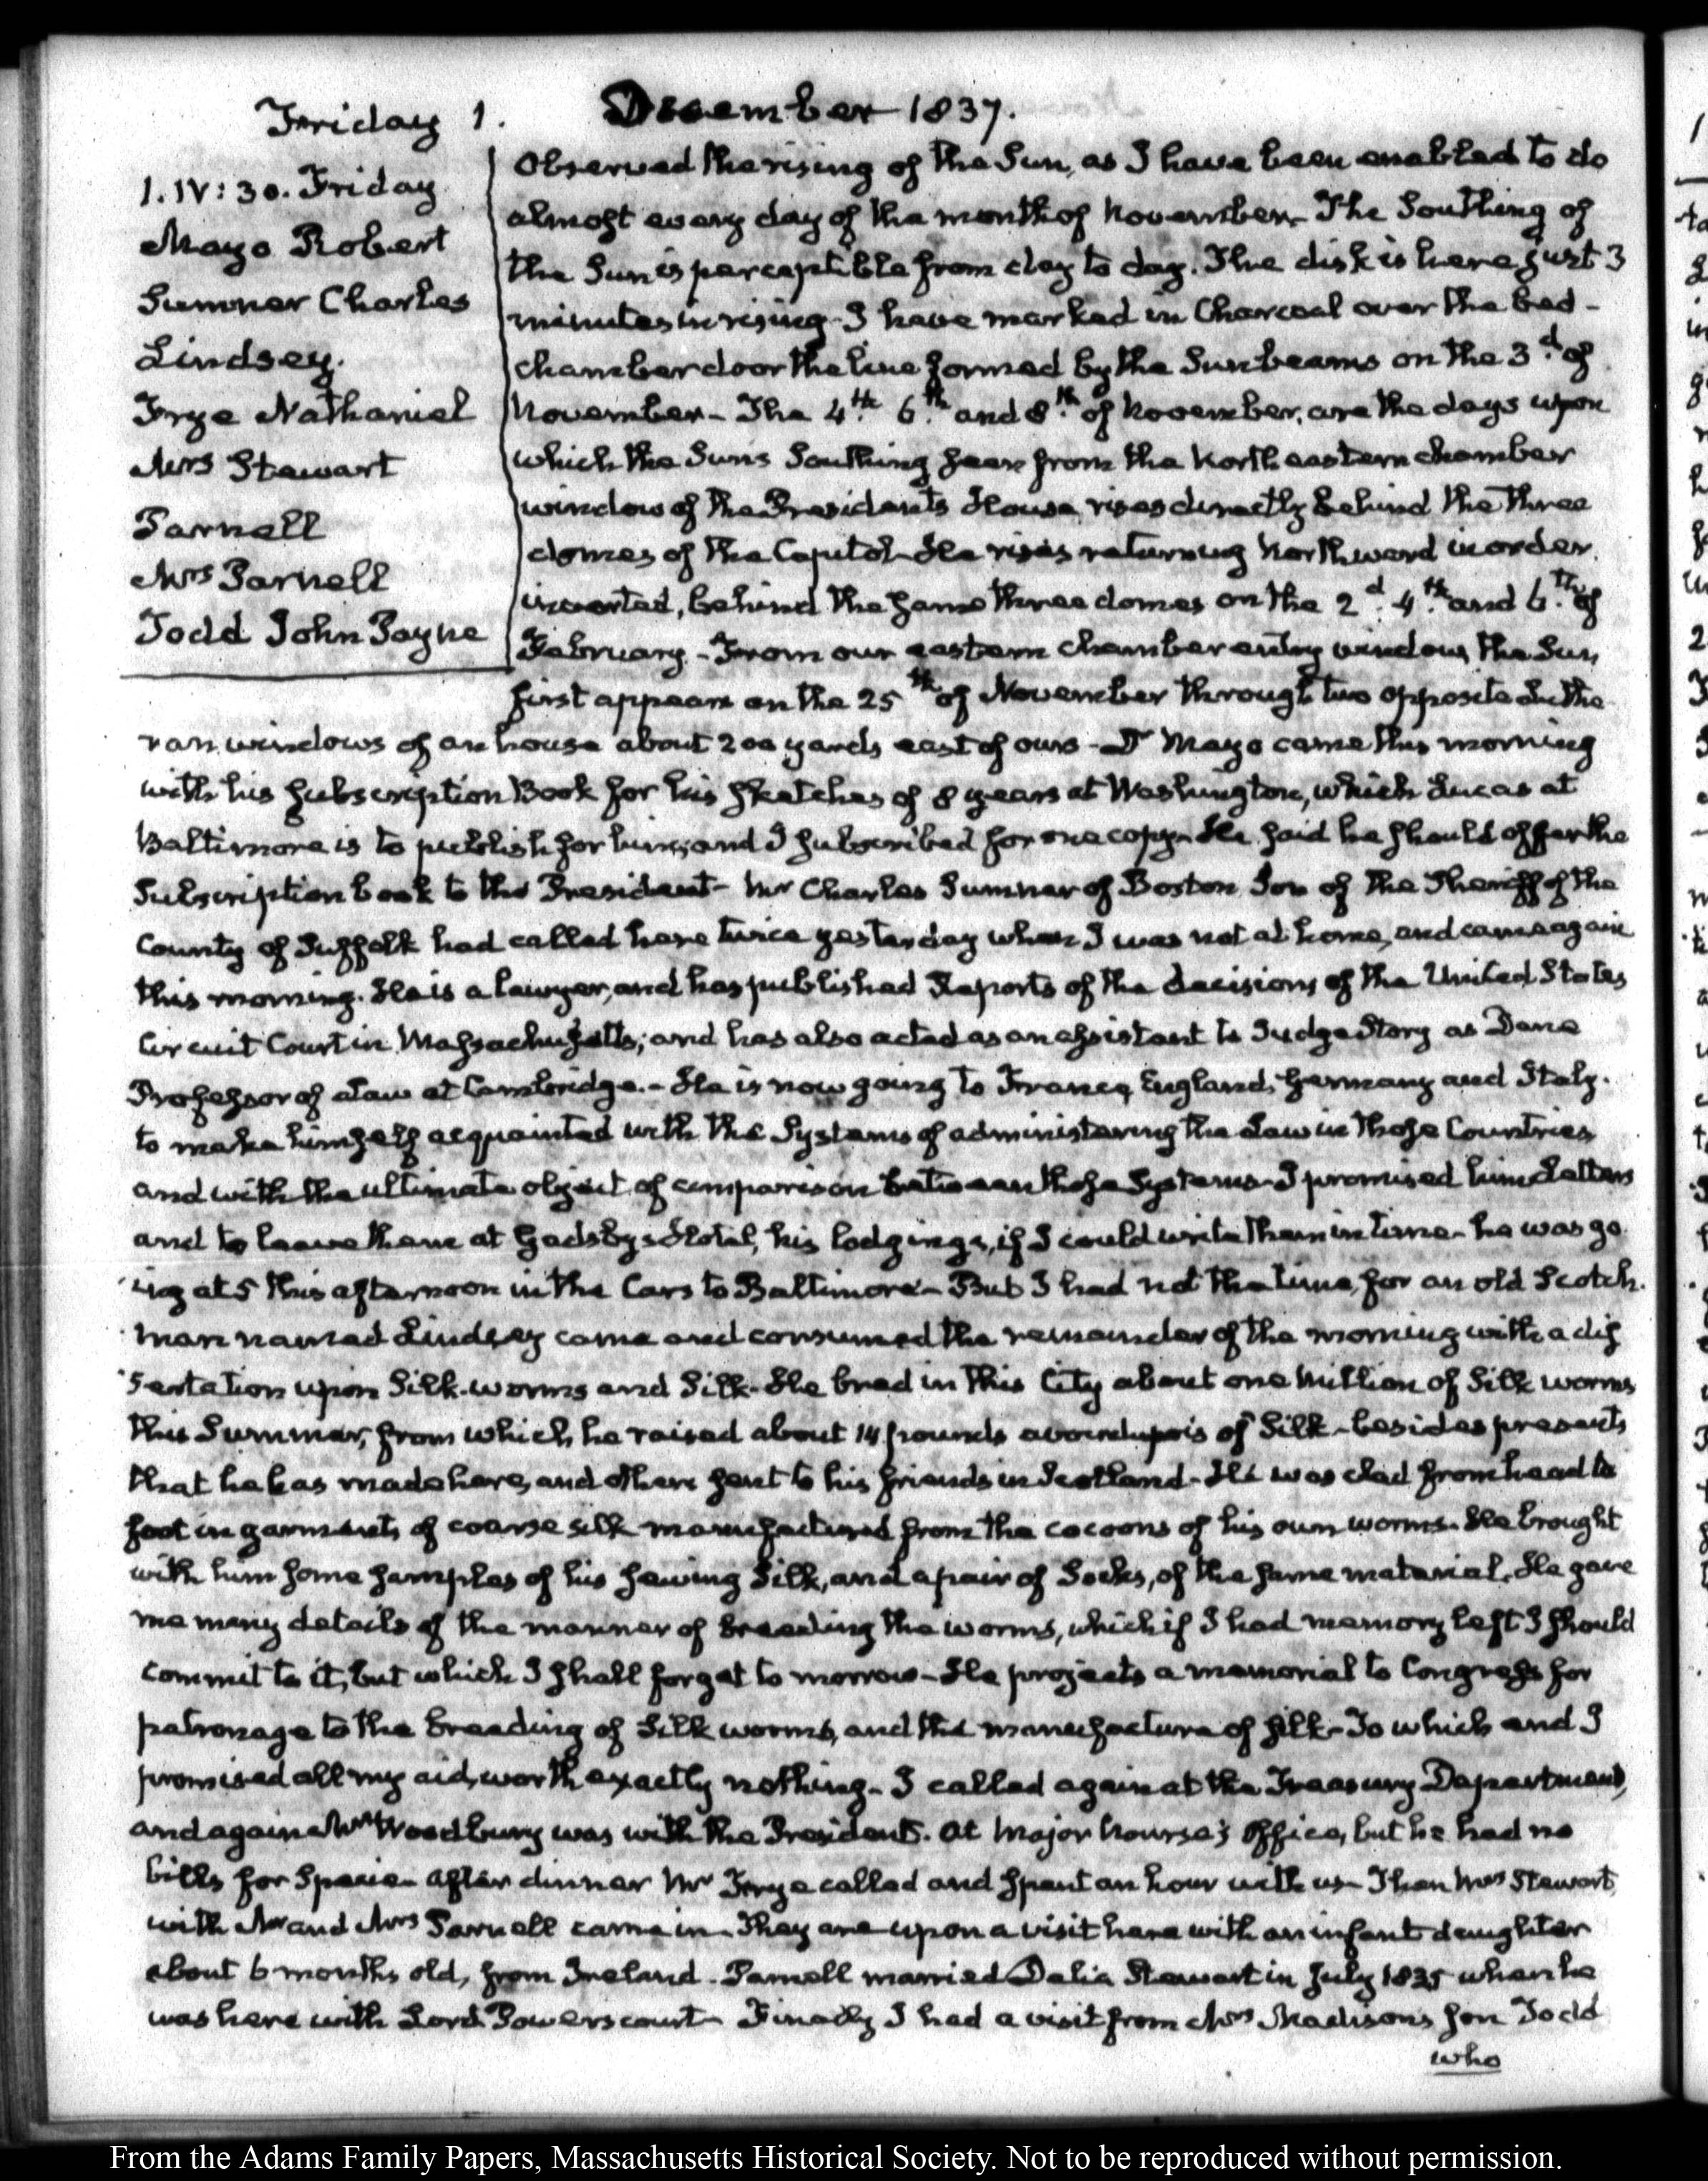 Friday 1.
December 1837.
1. IV: 30. Friday
Mayo Robert
Sumner Charles
Lindsey.
Frye Nathaniel
Mrs Stewart
Parnell
Mrs Parnell
Todd John Payne
Observed the rising of the Sun, as I have been enabled to do
almost every day of the month of November. The Southing of
the Sun is perceptible from day to day. The disk is here just 3
minutes in rising. I have marked in Charcoal over the bed-
chamber door the line formed by the Sunbeams on the 3.d of
November- The 4.th 6.th and 8.th of November, are the days upon
which the Suns Southing seen from the North eastern chamber
window of the Presidents House, rises directly behind the three
domes of the Capitol. He rises returning Northward in order
inverted, behind the same three domes on the 2.d 4.th and 6.th of
February - From our eastern chamber entry window, the Sun
first appears on the 25th of November through two opposite Luthe
ran windows of an house about 200 yards east of ours - Dr Mayo came this morning
with his subscription Book for his sketches of 8 years at Washington, which Lucas at
Baltimore is to publish for him; and I subscribed for one copy. He said he should offer the
Subscription book to the President- Mr Charles Sumner of Boston Son of the Sheriff of the
County of Suffolk had called here twice yesterday when I was not at home, and came again
this morning. He is a lawyer, and has published Reports of the decisions of the United States
Circuit Court in Massachusetts; and has also acted as an assistant to Judge Story as Dane
Professor of Law at Cambridge. - He is now going to France, England, Germany and Italy.
to make himself acquainted with the Systems of administering the Law in those Countries
and with the ultimate object of comparison between those Systems. I promised him Letters
and to leave them at Gadsby's Hotel, his lodgings, if I could write them in time- he was go
ing at 5 this afternoon in the Cars to Baltimore- But I had not the time, for an old Scotch.
man named Lindsey came and consumed the remainder of the morning with a dis
sertation upon Silk-worms and Silk. He bred in this City about one Million of Silk worms
this Summer, from which he raised about 14 pounds avoirdupois of Silk - besides presents
that he has made here, and others sent to his friends in Scotland- He was clad from head to
foot in garments of coarse silk manufactured from the cocoons of his own worms. He brought
with him some samples of his sewing Silk, and a pair of Socks, of the same material. He gave
me many details of the manner of breeding the worms, which if I had memory left I should
commit to it, but which I shall forget to morrow- He projects a memorial to Congress for
patronage to the breeding of Silk worms, and the manufacture of silk- To which end I
promised all my aid, worth exactly nothing- I called again at the Treasury Department,
and again Mr Woodbury was with the President. At Major Nourse's Office, but he had no
bills for Specie- After dinner Mr Frye called and spent an hour with us- Then Mrs Stewart,
with Mr and Mrs Parnell came in- They are upon a visit here with an infant daughter
about 6 months old, from Ireland - Parnell married Delia Stewart in July 1835 when he
was here with Lord Powerscourt- Finally I had a visit from Mrs Madison's son Todd
who
From the Adams Family Papers, Massachusetts Historical Society. Not to be reproduced without permission.